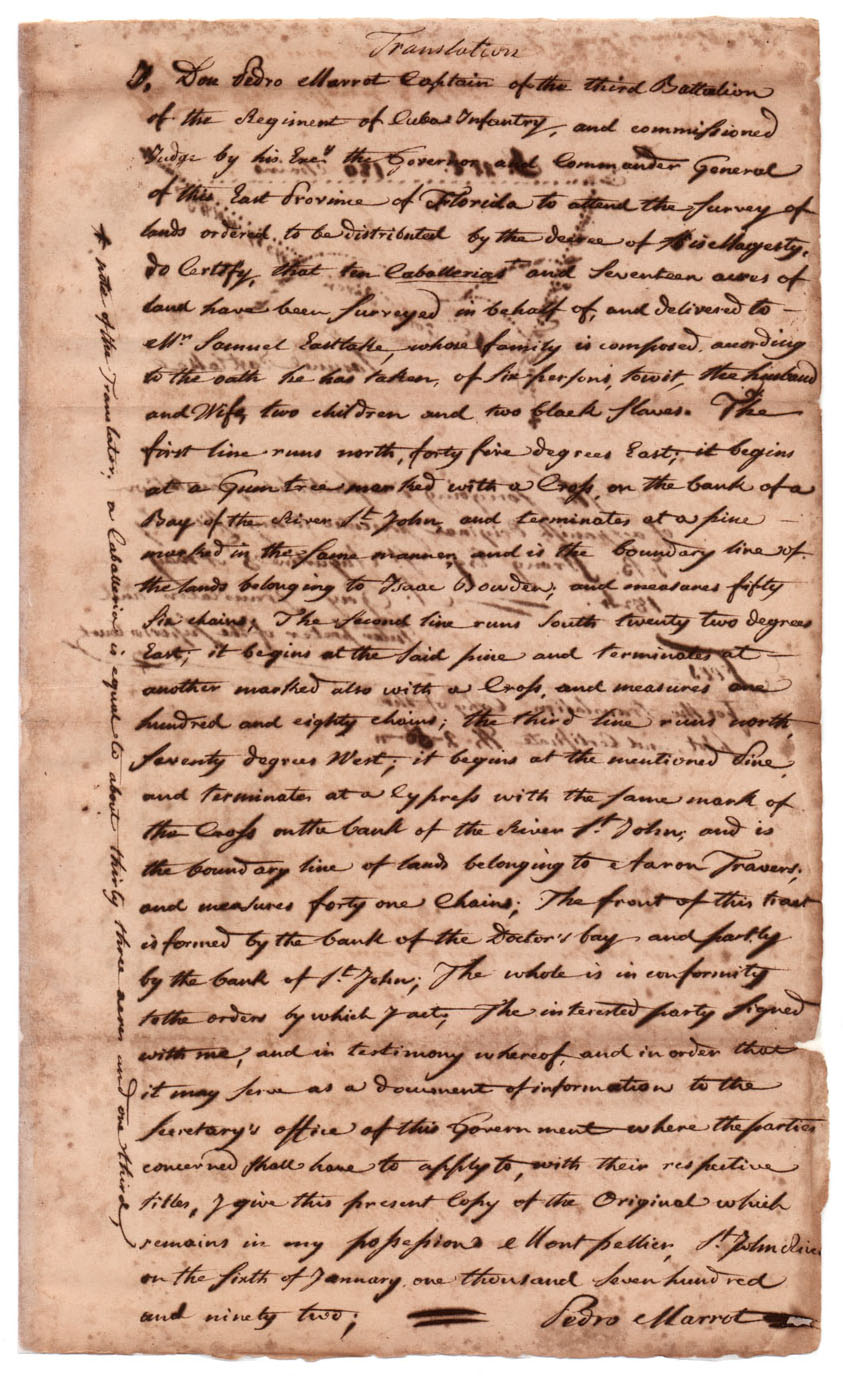 Translation
I, Don Pedro Marrot Captain of the third Battalion
of the Regiment of Cuba Infantry, and commissioned
Judge by his Excy the Governor and Commander General
of this East Province of Florida to attend the survey of
lands ordered to be distributed by the decree of His Magesty,
do Certify, that ten Caballerias + and Seventeen acres of
land have been Surveyed in behalf of, and delivered to –
Mr Samuel Eastlake, whose family is composed, acording
to the oath he has taken, of six persons, towit, the husband
and Wife, two children and two black slaves. The
first line runs north, forty five degrees East; it begins
at a Gum tree marked with a Cross, on the bank of a
Bay of the River St John, and terminates at a pine –
marked in the same manner, and is the boundary line of
the lands belonging to Isaac Bowden; and measures fifty
six chains; The Second line runs South twenty two degrees
East; it begins at the said pine and terminates at –
another marked also with a Cross, and measures one
hundred and eighty chains; the third line runs north,
seventy degrees West; it begins at the mentioned Pine,
and terminates at a Cypress with the same mark of
the Cross on the bank of the River St John; and is
the boundary line of lands belonging to Aaron Travers;
and measures forty one Chains; The front of this tract
is formed by the bank of the Doctor's bay and partly
by the bank of St John; The whole is in conformity
to the orders by which I act; The interested party signed
with me, and in testimony whereof, and in order that
it may serve as a document of information to the
Secretary's office of this Government where the parties
concerned shall have to apply to, with their respective
titles, I give this present Copy of the Original which
remains in my possession Montpellier, St John River
on the sixth of January one thousand seven hundred
and ninety two; Pedro Marrot
+ note of the Translator; a Caballeria is equal to about thirty three acres and one third,